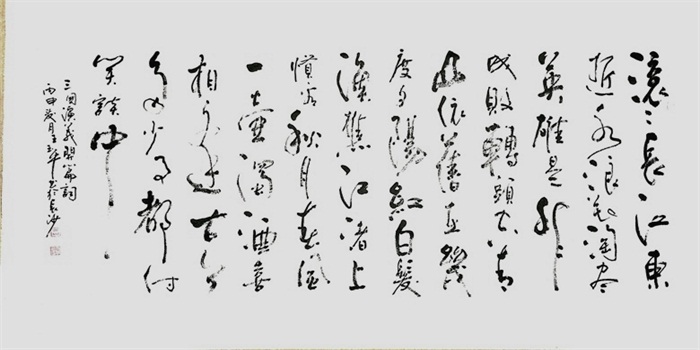 滚滚长江东
逝水浪花淘尽
英雄是非
成败转头空青
山依旧在几
度夕阳红白发
渔樵江渚上
惯看秋月春风
一壶浊酒喜
相逢古今
多少事都付
笑谈中
三国演义开篇词
丙申岁月